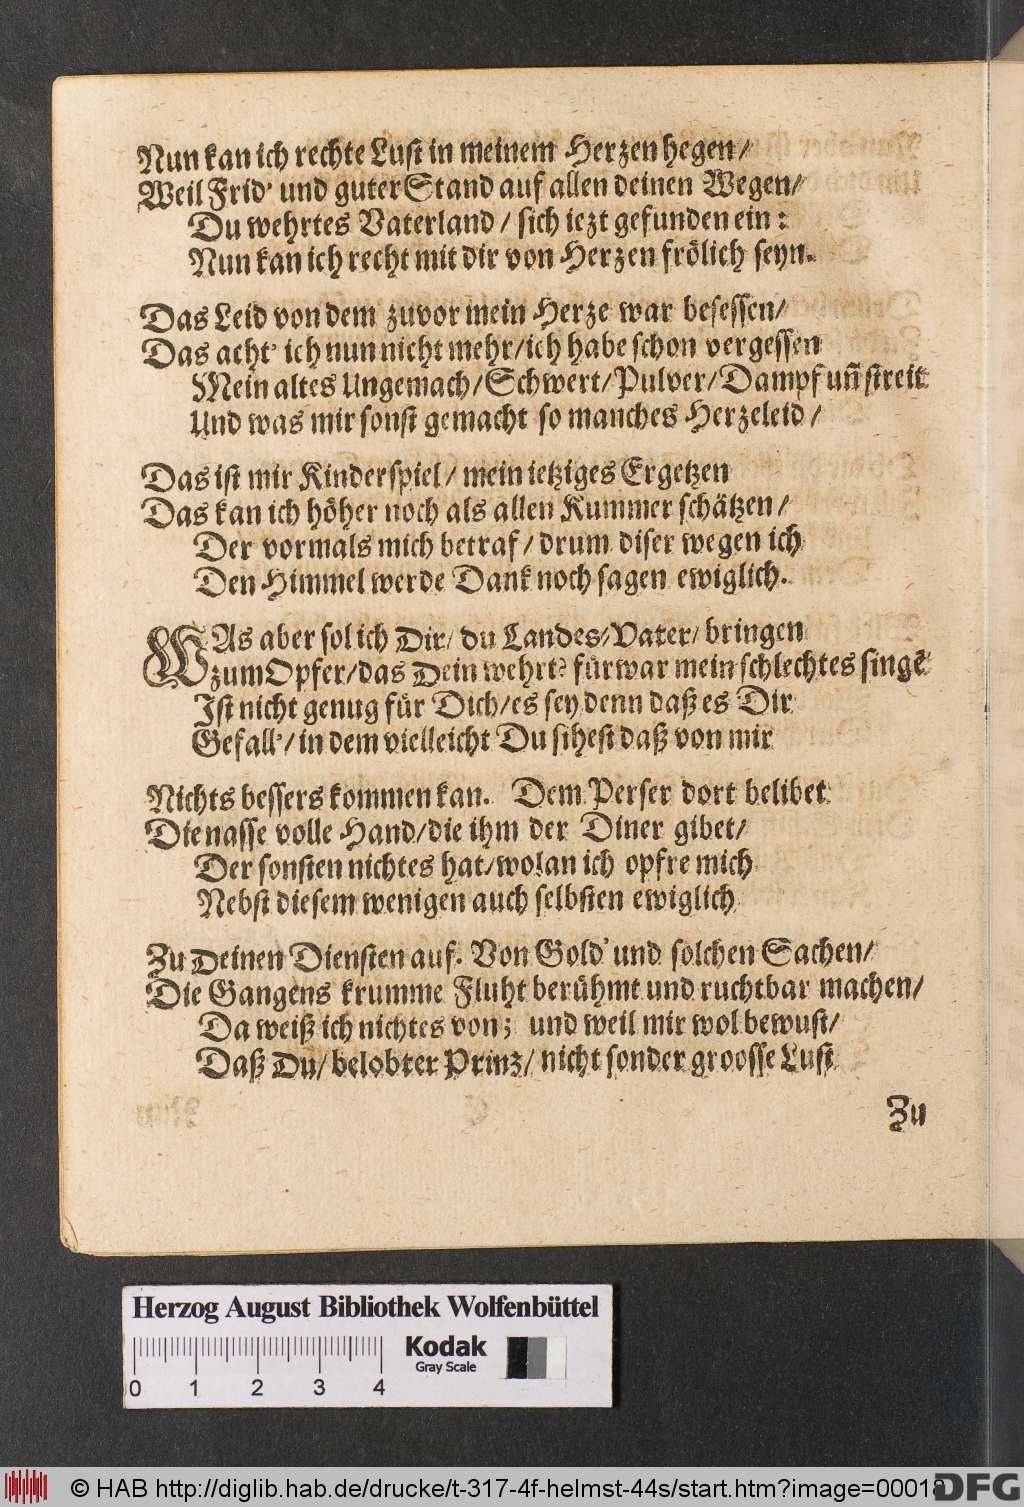 Nun kan ich rechte Lust in meinem Herzen hegen/
Weil Frid' und guter Stand auf allen deinen Wegen/
Du wehrtes Vaterland/ sich iezt gefunden ein:
Nun kan ich recht mit dir von Herzen frölich seyn.
Das Leid von dem zuvor mein Herze war besessen/
Das acht' ich nun nicht mehr/ich habe schon vergessen
Mein altes Ungemach/Schwert/Pulver/Dampf uñ streit
Und was mir sonst gemacht so manches Herzeleid/
Das ist mir Kinderspiel/ mein ietziges Ergetzen
Das kan ich höher noch als allen Kummer schätzen/
Der vormals mich betraf/drum diser wegen ich
Den Himmel werde Dank noch sagen ewiglich.
WAs aber sol ich Dir/ du Landes/Vater/ bringen
zum Opfer/das Dein wehrt? fürwar mein schlechtes singẽ
Ist nicht genug für Dich/es sey denn daß es Dir
Gefall'/in dem vielleicht Du sihest daß von mir
Nichts bessers kommen kan. Dem Perser dort belibet
Die nasse volle Hand/die ihm der Diner gibet/
Der sonsten nichtes hat/wolan ich opfre mich
Nebst diesem wenigen auch selbsten ewiglich
Zu Deinen Diensten auf. Von Gold' und solchen Sachen/
Die Gangens krumme Fluht berühmt und ruchtbar machen/
Da weiß ich nichtes von; und weil mir wol bewust/
Daß Du/ belobter Prinz/ nicht sonder groosse Lust
Zu
Herzog August Bibliothek Wolfenbüttel
Kodak
Gray Scale
0 1 2 3 4
© HAB http://diglib.hab.de/drucke/t-317-4f-helmst-44s/start.htm?image=00018
DFG